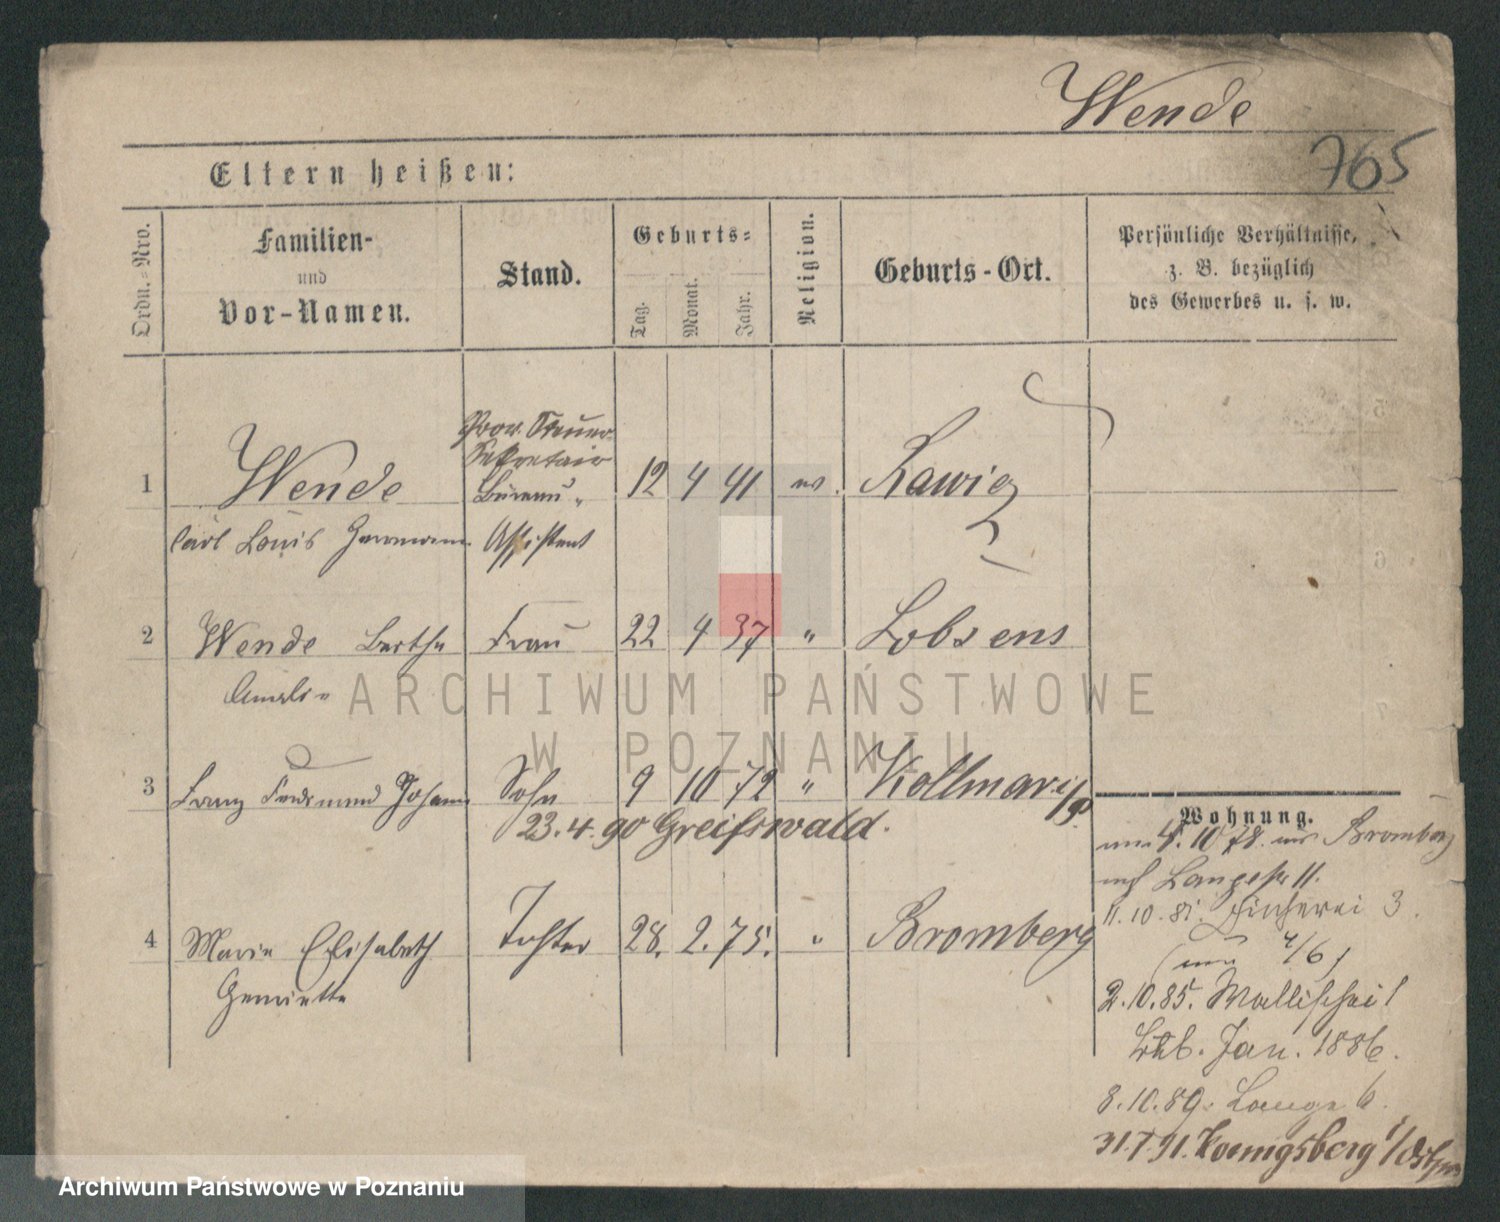 Wende
765
Eltern heißen:
Ordn.-Nro.
Familien-
und
Vor-Namen.
Stand.
Geburts-
Tag.
Monat.
Jahr.
Religion.
Geburts-Ort.
Persönliche Verhältnisse,
z. B. bezüglich
des Gewerbes u. s. w.
Prov. Steuer
Sekretair
1 Wende Büreau- 12 4 41 ev. Rawicz
Carl Louis Hermann Assistent
2 Wende Bertha Frau 22 4 37 " Lobsens
Amalie
ARCHIWUM PAŃSTWOWE
W POZNANIU
3 Franz Ferdinand Johann Sohn 9 10 72 " Kollmar i/P.
23.4.90 Greifswald.
4 Marie Elisabeth Tochter 28. 2. 75. " Bromberg
Henriette
Wohnung.
4. 10 78. aus Bromberg
nach Langestr 11.
11.10.81. Fischerei 3.
4/6)
2.10.85. Wallischei 1
Jan. 1886.
8.10.89. Lange 6.
31.7.91. Koenigsberg i/Ostpr
Archiwum Państwowe w Poznaniu